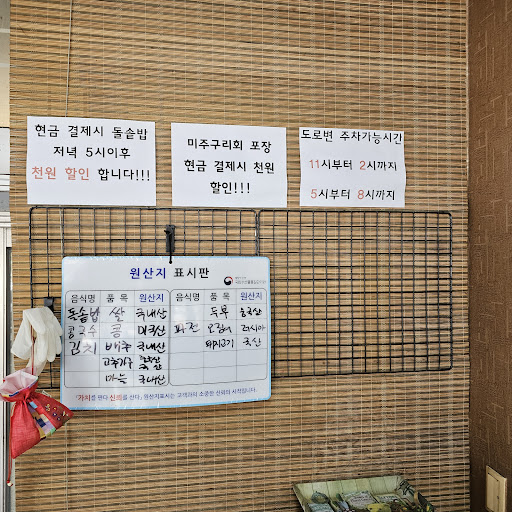 현금 결제시 돌솥밥
저녁 5시이후
천원 할인 합니다!!!
미주구리회 포장
현금 결제시 천원
할인!!!
도로변 주차가능시간
11시부터 2시까지
5시부터 8시까지
원산지 표시판
음식명 품 목 원산지 음식명 품 목 원산지
돌솥밥 쌀 국내산 두부 외국산
콩국수 콩 미국산 파전 오징어 러시아
김치 배추 국내산 돼지고기 국산
고추가루
마늘 국내산
"가치를 판다 신뢰를 산다, 원산지표시는 고객과의 소중한 신뢰의 시작입니다.